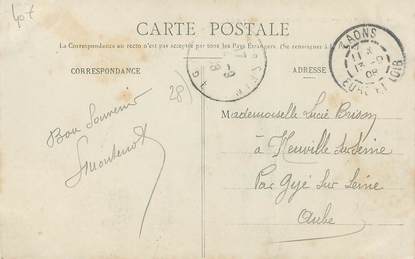 40f
CARTE POSTALE
La Correspondance au recto n'est pas acceptée par tous les Pays Étrangers. (Se renseigner à la
CORRESPONDANCE
ADRESSE
LAONS
13 -9
08
EURE ET LOIR
28)
Bon Souvenir
Mademoiselle Lucie Brisson
à Neuville sur Seine
Par Gyé sur Seine
Aube